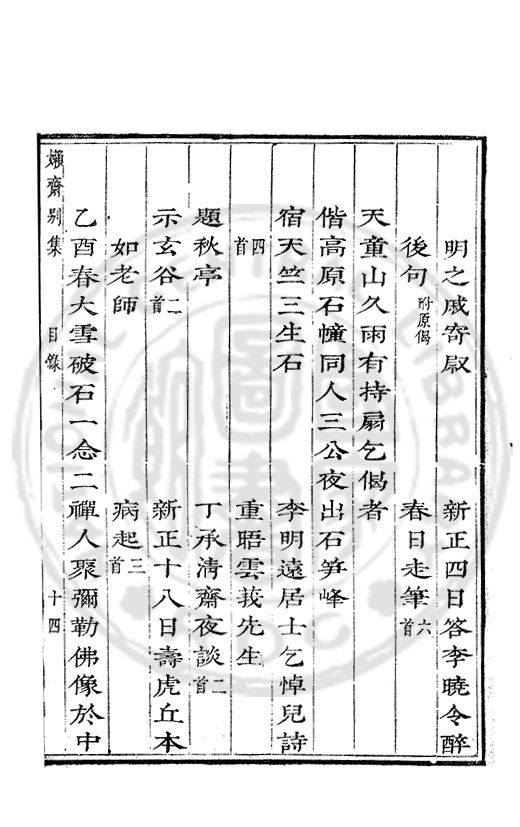 明之戚寄　新正四日答李曉令醉
後句附原偈　春日走筆六首
天童山久雨有持扇乞偈者
偕高原石幢同人三公夜出石笋峰
宿天竺三生石　李明遠居士乞悼兒詩
四首　重晤雲莪先生
題秋亭　丁承清齋夜談二首
示玄谷二首　新正十八日壽虎丘本
如老師　病起三首
乙酉春大雪破石一念二禪人聚彌勒佛像於中
嬾齋别集　目錄　十四